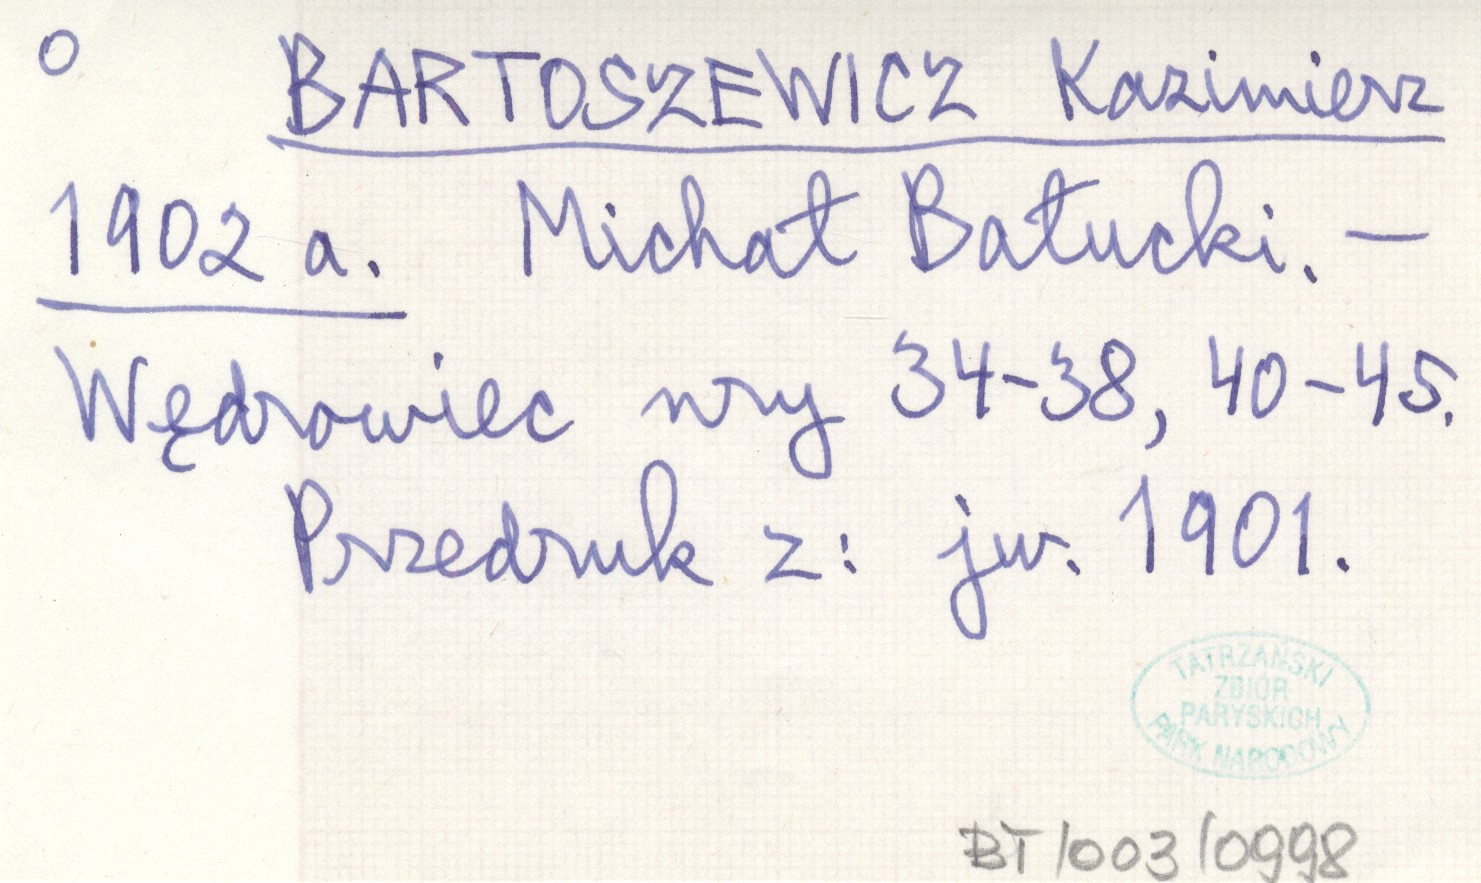 o BARTOSZEWICZ Kazimierz
1902 a. Michał Bałucki. —
Wędrowiec nry 34-38, 40-45.
Przedruk z: jw. 1901.
TATRZAŃSKI
ZBIÓR
PARYSKICH
PARK NARODOWY
BT/003/0998